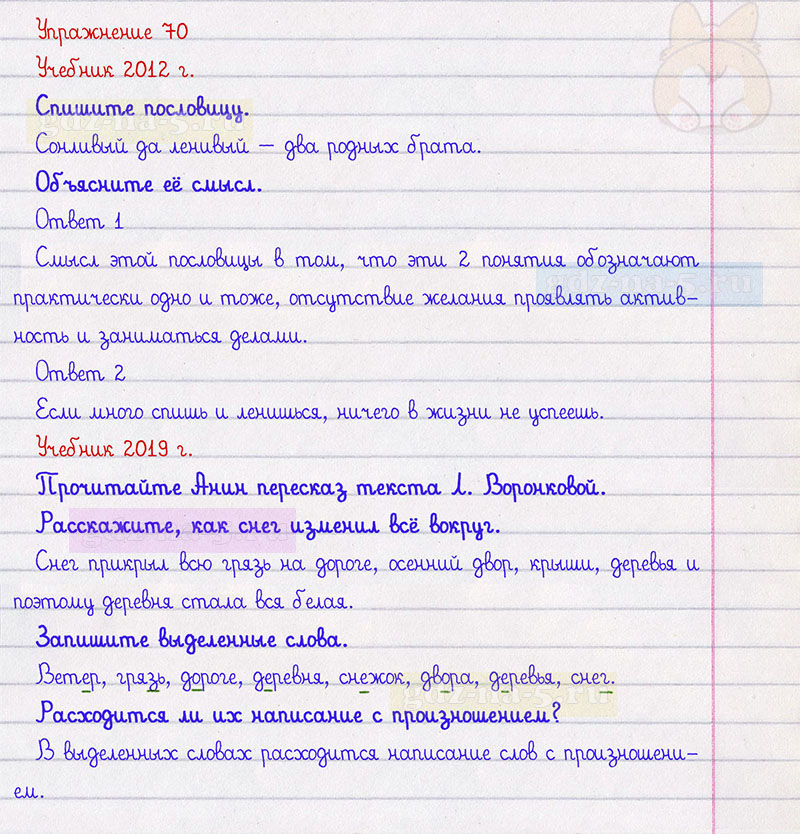 Упражнение 70
Учебник 2012 г.
Спишите пословицу.
Сонливый да ленивый – два родных брата.
Объясните её смысл.
Ответ 1
Смысл этой пословицы в том, что эти 2 понятия обозначают
практически одно и тоже, отсутствие желания проявлять актив-
ность и заниматься делами.
Ответ 2
Если много спишь и ленишься, ничего в жизни не успеешь.
Учебник 2019 г.
Прочитайте Анин пересказ текста Л. Воронковой.
Расскажите, как снег изменил всё вокруг.
Снег прикрыл всю грязь на дороге, осенний двор, крыши, деревья и
поэтому деревня стала вся белая.
Запишите выделенные слова.
Ветер, грязь, дороге, деревня, снежок, двора, деревья, снег.
Расходится ли их написание с произношением?
В выделенных словах расходится написание слов с произношени-
ем.